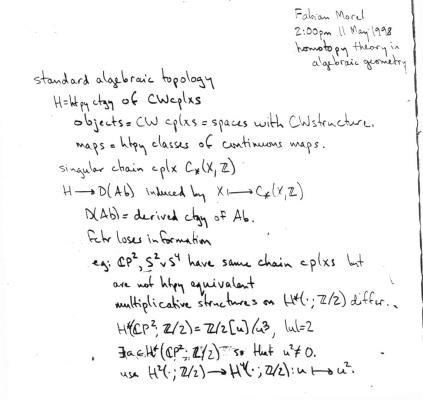 Fabian Morel
2:00pm 11 May 1998
homotopy theory in
algebraic geometry
standard algebraic topology
H=htpy ctgy of CWcplxs
objects = CW cplxs = spaces with CWstructure.
maps = htpy classes of continuous maps.
singular chain cplx C_*(X,ℤ)
H → D(Ab) induced by X ↦ C_*(X,ℤ)
D(Ab) = derived ctgy of Ab.
fctr loses information
eg: ℂP², S²∨S⁴ have same chain cplxs but
are not htpy equivalent
multiplicative structures on H*(·; ℤ/2) differ.
H*(ℂP², ℤ/2) = ℤ/2[u]/u³, |u|=2
∃a∈H*(ℂP²; ℤ/2) so that u²≠0.
use H²(·; ℤ/2) → H⁴(·; ℤ/2): u ↦ u².